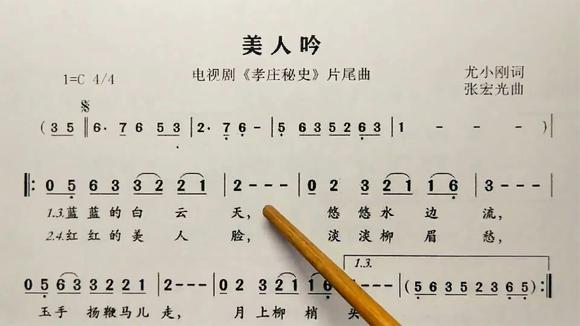 美人吟
1=C 4/4
电视剧《孝庄秘史》片尾曲
尤小刚词
张宏光曲
( 3 5 ‖ 6· 7 6 5 3 | 2· 7 6 - | 5 6 3 5 2 6 3 | 1 - - ) |
‖: 0 5 6 3 3 2 2 1 | 2 - - - | 0 2 3 2 1 1 6 | 3 - - - |
1.3.蓝蓝的白云天, 悠悠水边流,
2.4.红红的美人脸, 淡淡柳眉愁,
1.3.
0 5 6 3 3 2 2 1 | 2 - - - | 0 5 6 3 2 1 2 | 1 - - - | ( 5 6 3 5 2 3 6 5 ) :‖
玉手扬鞭马儿走, 月上柳梢头